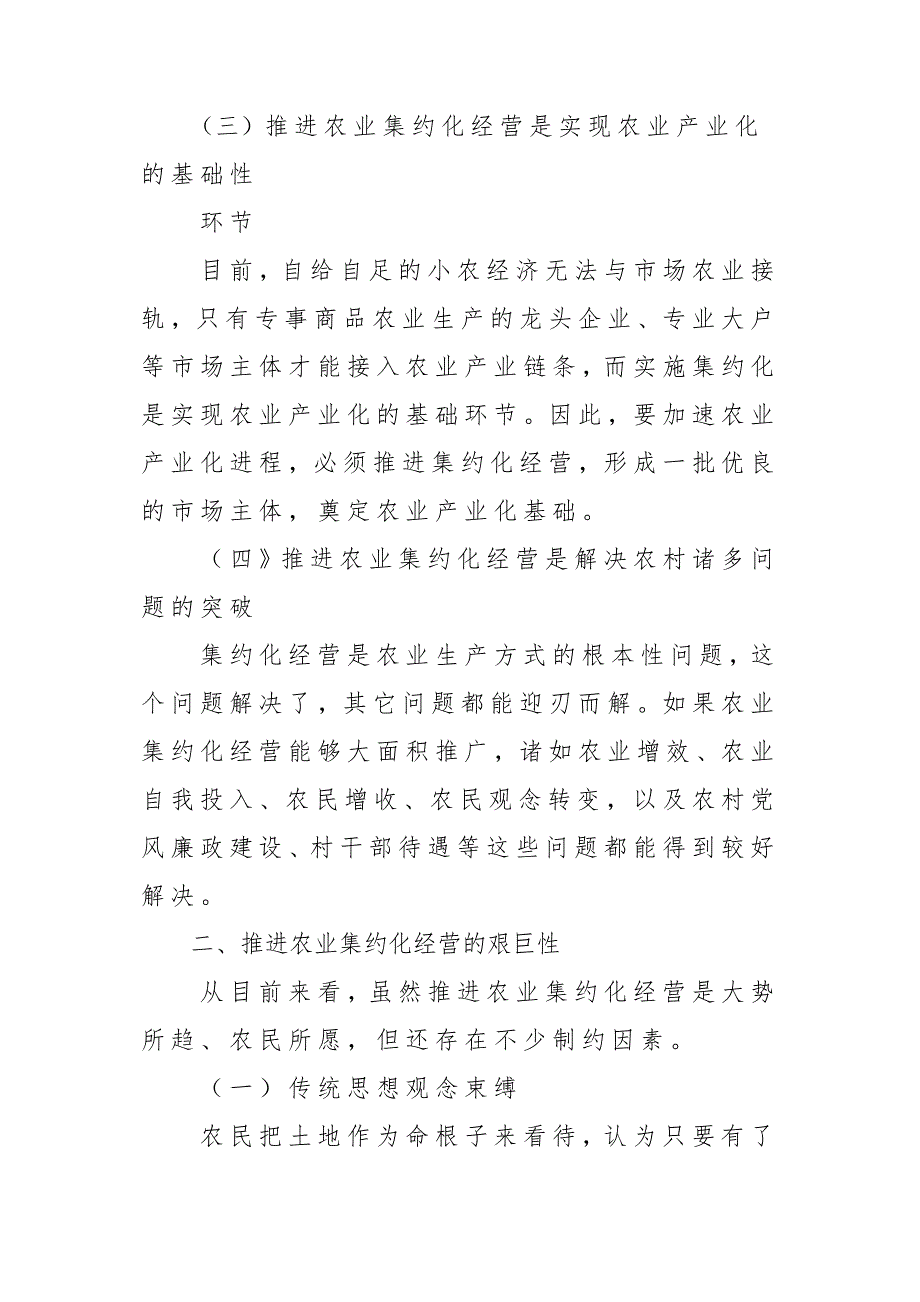 （三）推进农业集约化经营是实现农业产业化
的基础性
环节
目前，自给自足的小农经济无法与市场农业接
轨，只有专事商品农业生产的龙头企业、专业大户
等市场主体才能接入农业产业链条，而实施集约化
是实现农业产业化的基础环节。因此，要加速农业
产业化进程，必须推进集约化经营，形成一批优良
的市场主体，奠定农业产业化基础。
（四》推进农业集约化经营是解决农村诸多问
题的突破
集约化经营是农业生产方式的根本性问题，这
个问题解决了，其它问题都能迎刃而解。如果农业
集约化经营能够大面积推广，诸如农业增效、农业
自我投入、农民增收、农民观念转变，以及农村党
风廉政建设、村干部待遇等这些问题都能得到较好
解决。
二、推进农业集约化经营的艰巨性
从目前来看，虽然推进农业集约化经营是大势
所趋、农民所愿，但还存在不少制约因素。
（一）传统思想观念束缚
农民把土地作为命根子来看待，认为只要有了